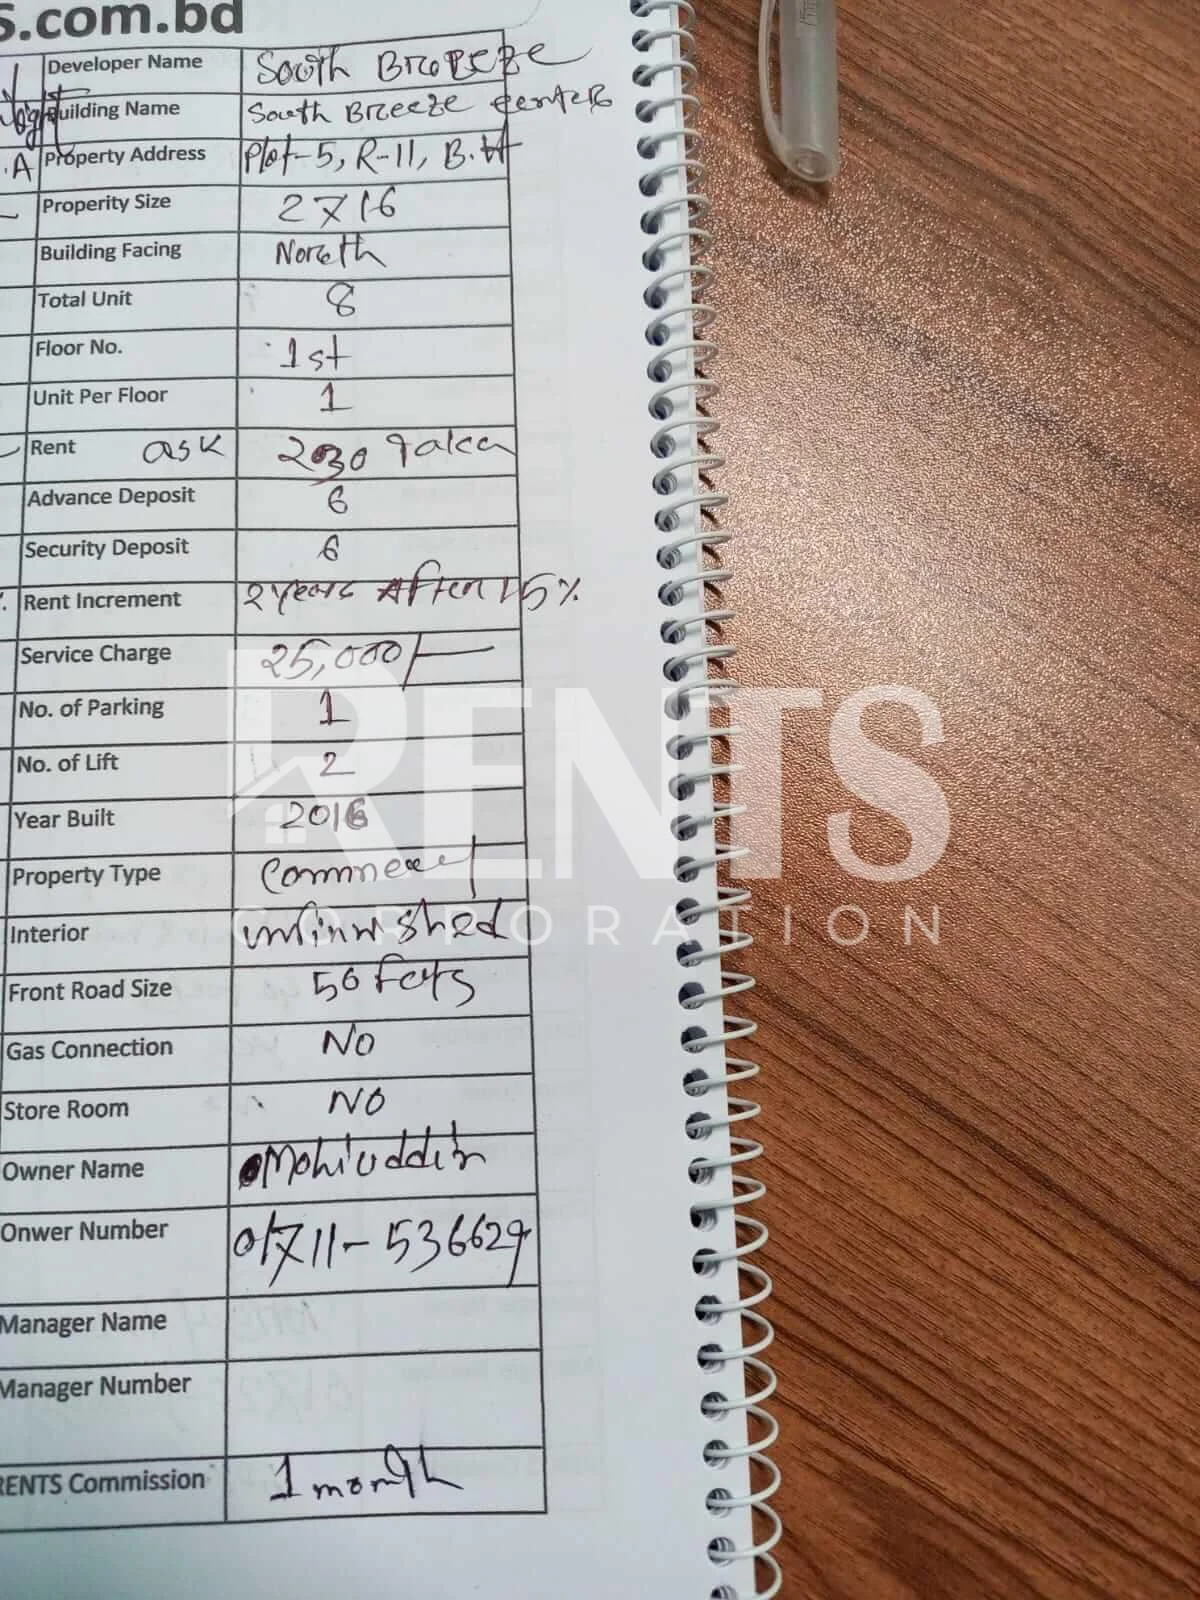 S.com.bd
Developer Name South Breeze
Building Name South Breeze center
.A Property Address Plot-5, R-11, B.H
Properity Size 2716
Building Facing North
Total Unit 8
Floor No. 1st
Unit Per Floor 1
Rent ask 230 Taka
Advance Deposit 6
Security Deposit 6
Rent Increment 2 years After 15%
Service Charge 25,000/-
No. of Parking 1
No. of Lift 2
Year Built 2016
RENTS
Property Type
CORPORATION
Interior
Front Road Size 50
Gas Connection NO
Store Room NO
Owner Name Mohiuddin
Onwer Number 01711-536629
Manager Name
Manager Number
RENTS Commission 1 month